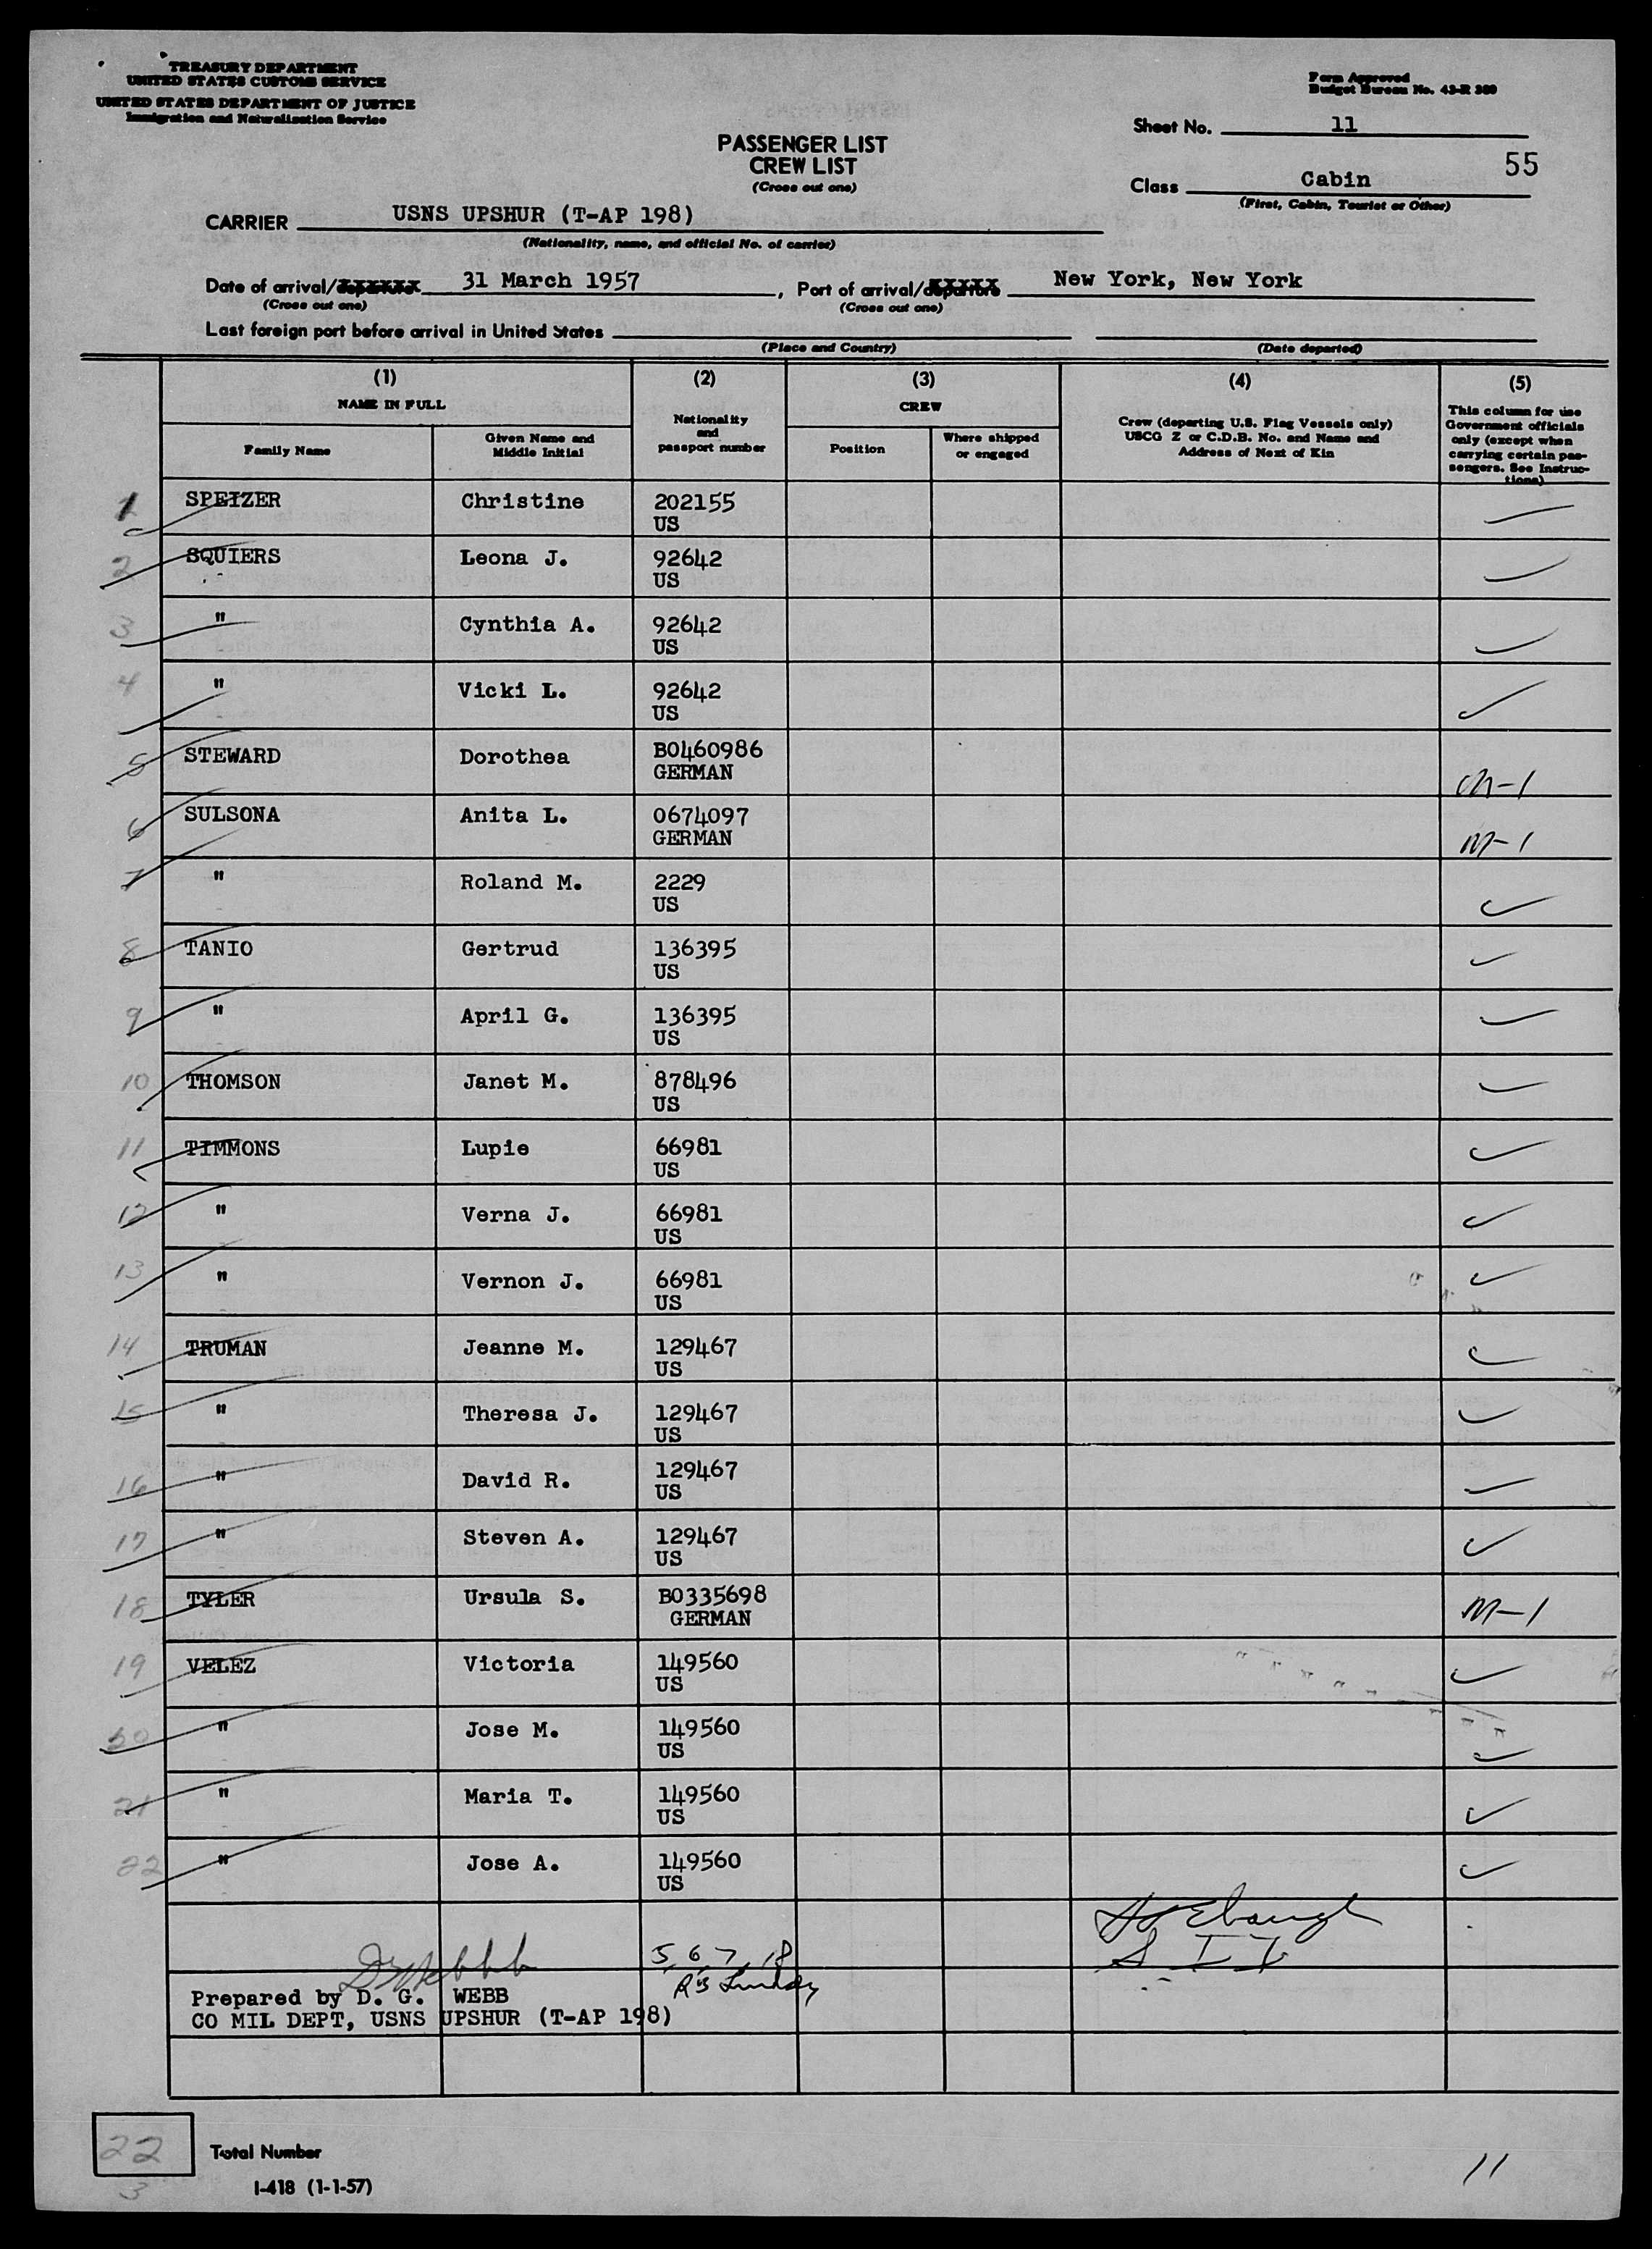 TREASURY DEPARTMENT
UNITED STATES CUSTOMS SERVICE
UNITED STATES DEPARTMENT OF JUSTICE
Immigration and Naturalization Service
Form Approved
Budget Bureau No. 43-R 380
Sheet No. 11
55
PASSENGER LIST
CREW LIST
(Cross out one)
Class Cabin
(First, Cabin, Tourist or Other)
CARRIER USNS UPSHUR (T-AP 198)
(Nationality, name, and official No. of carrier)
Date of arrival/departure 31 March 1957, Port of arrival/departure New York, New York
(Cross out one) (Cross out one)
Last foreign port before arrival in United States
(Place and Country) (Date departed)
(1) (2) (3) (4) (5)
NAME IN FULL
Family Name
Given Name and
Middle Initial
Nationality
and
passport number
CREW
Position
Where shipped
or engaged
Crew (departing U.S. Flag Vessels only)
USCG Z or C.D.B. No. and Name and
Address of Next of Kin
This column for use
Government officials
only (except when
carrying certain pas-
sengers. See Instruc-
tions)
1 SPEIZER Christine 202155
US
2 SQUIERS Leona J. 92642
US
3 " Cynthia A. 92642
US
4 " Vicki L. 92642
US
5 STEWARD Dorothea B0460986
GERMAN M-1
6 SULSONA Anita L. 0674097
GERMAN M-1
7 " Roland M. 2229
US
8 TANIO Gertrud 136395
US
9 " April G. 136395
US
10 THOMSON Janet M. 878496
US
11 TIMMONS Lupie 66981
US
12 " Verna J. 66981
US
13 " Vernon J. 66981
US
14 TRUMAN Jeanne M. 129467
US
15 " Theresa J. 129467
US
16 " David R. 129467
US
17 " Steven A. 129467
US
18 TYLER Ursula S. B0335698 M-1
GERMAN
19 VELEZ Victoria 149560
US
20 " Jose M. 149560
US
21 " Maria T. 149560
US
22 " Jose A. 149560
US
5 6 7, 18
Prepared by D. G. WEBB
CO MIL DEPT, USNS UPSHUR (T-AP 198)
22 Total Number
3
I-418 (1-1-57)
11